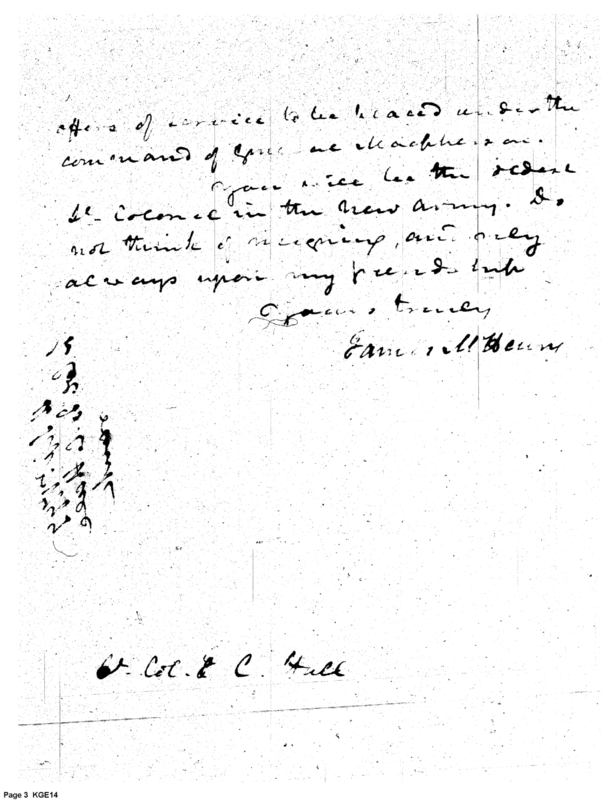 offers of service to be placed under the
command of General Macpherson.
You will be the oldest
Lt. Colonel in the new Army. Do
not think of resigning, and rely
always upon my friendship
Yours truely
James McHenry
Lt. Col. E C. Hall
Page 3 KGE14